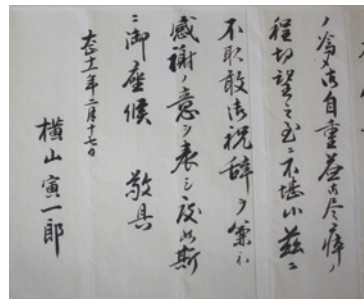 ノ為メ御自重益御尽瘁ノ
程切望之至ニ不堪候茲ニ
不取敢御祝辞ヲ兼ネ
感謝ノ意ヲ表シ度如斯
ニ御座候　敬具
大正十一年二月十七日
横山寅一郎